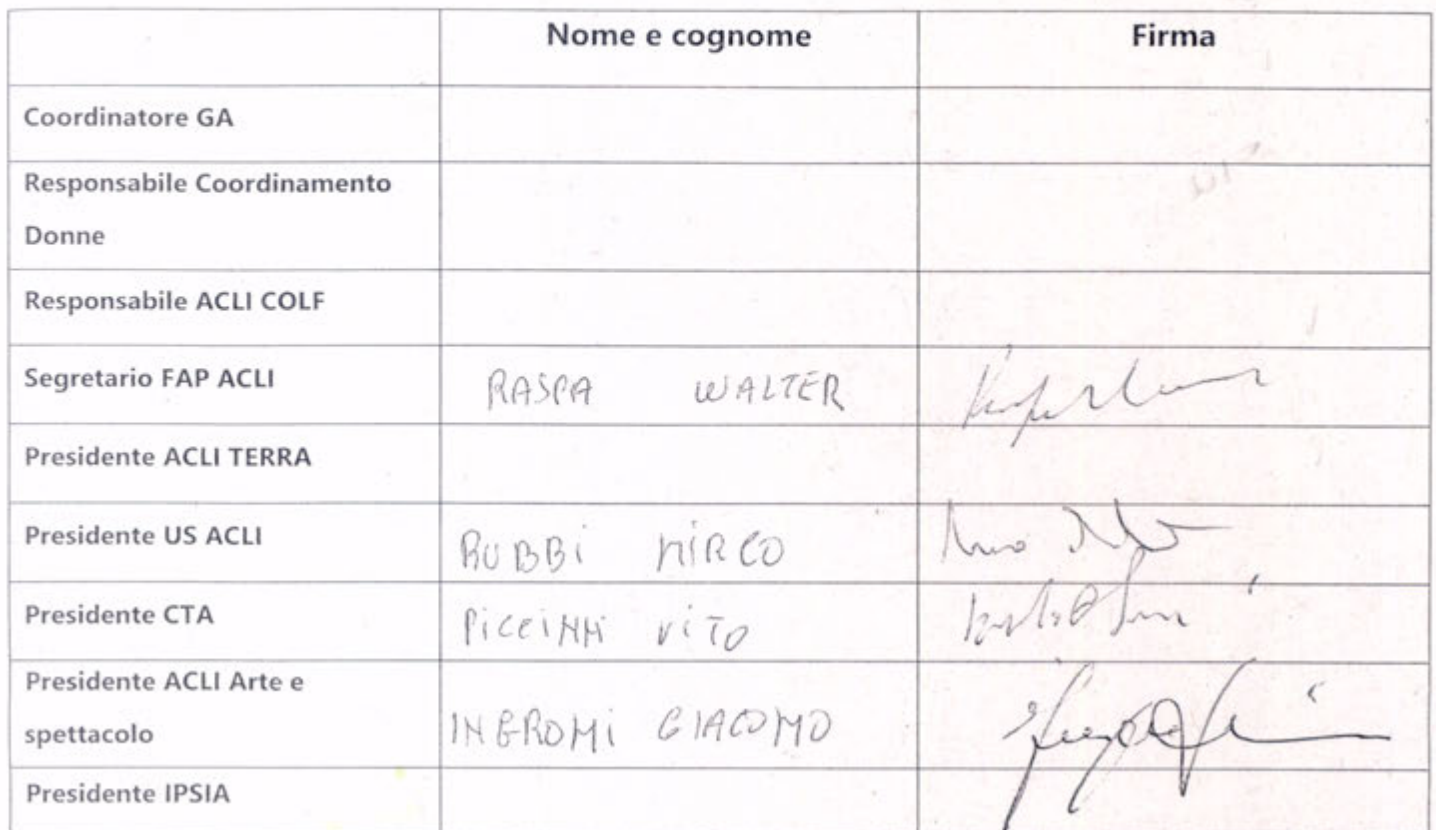 Nome e cognome Firma
Coordinatore GA
Responsabile Coordinamento
Donne
Responsabile ACLI COLF
Segretario FAP ACLI RASPA WALTER
Presidente ACLI TERRA
Presidente US ACLI RUBBI MIRCO
Presidente CTA VITO
Presidente ACLI Arte e
spettacolo GIACOMO
Presidente IPSIA